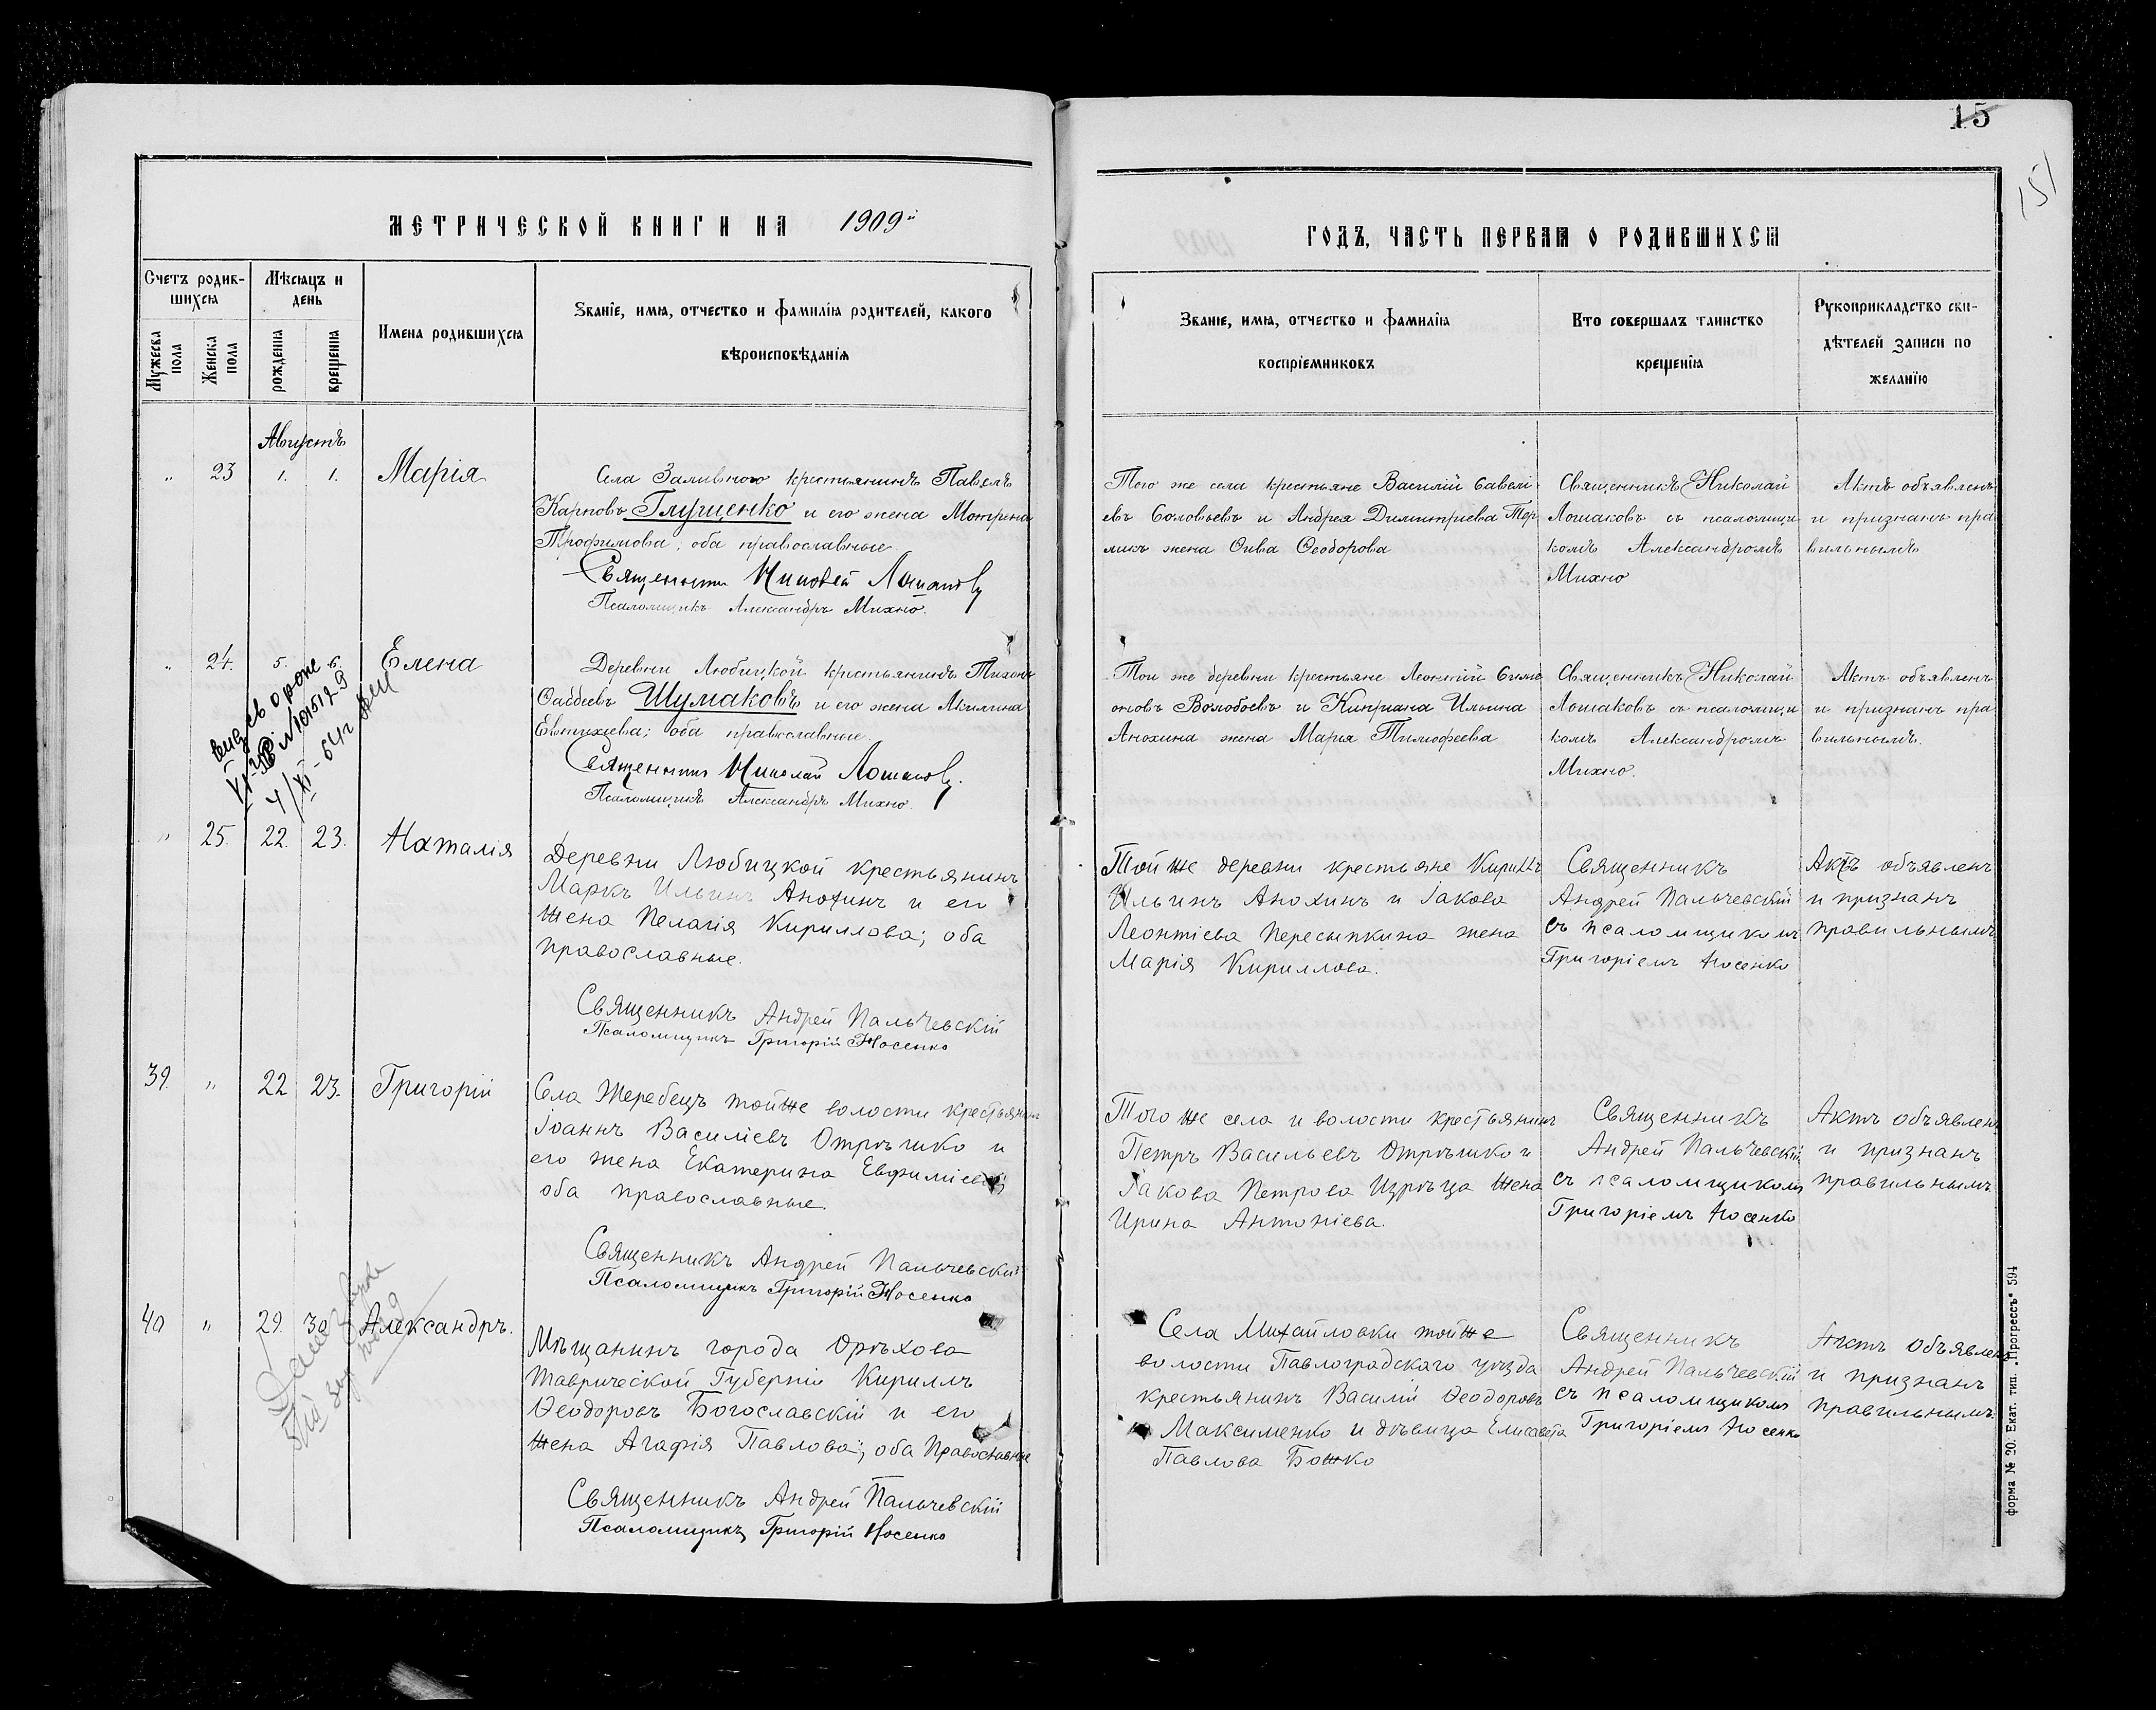 15
151
МЕТРИЧЕСКОЙ КНИГИ НА 1909й
ГОДЪ, ЧАСТЬ ПЕРВАЯ О РОДИВШИХСЯ
Счетъ родив-
шихся
Мужеска
пола
Женска
пола
Мѣсяцъ и
день
рожденія
крещенія
Имена родившихся
Званіе, имя, отчество и фамилія родителей, какого
вѣроисповѣданія
Званіе, имя, отчество и фамилія
воспріемниковъ
Кто совершалъ таинство
крещенія
Рукоприкладство сви-
дѣтелей записи по
желанію
Августъ
" 23 1. 1. Марія
Села Заливного крестьянинъ Павелъ
Карповъ Глущенко и его жена Мотрена
Трофимова; оба православные
Священникъ Николай Лошаковъ
Псаломщикъ Александръ Михно.
Того же села крестьяне Василій Савелі-
евъ Соловьевъ и Андрея Димитріева
жена Ѳеодорова
Священникъ Николай
Лошаковъ съ псаломщи
комъ Александромъ
Михно
Актъ объявленъ
и признанъ пра
вильнымъ
" 24. 5. 6. Елена
Деревни Любицкой крестьянинъ Тихонъ
Ѳаддеевъ Шумаковъ и его жена Акилина
Евтихіева; оба православные.
Священникъ Николай Лошаковъ.
Псаломщикъ Александръ Михно.
Той же деревни крестьяне Леонтій Симе
оновъ Волобоевъ и Кипріана Ильина
Анохина жена Марья Тимофеева
Священникъ Николай
Лошаковъ съ псаломщи
комъ Александромъ
Михно.
Актъ объявленъ
и признанъ пра
вильнымъ.
" 25. 22. 23. Наталія
Деревни Любицкой крестьянинъ
Маркъ Ильинъ Анохинъ и его
жена Пелагія Кириллова; оба
православные.
Священникъ Андрей Пальчевскій
Псаломщикъ Григорій Носенко
Той же деревни крестьяне Кириллъ
Ильинъ Анохинъ и Іакова
Леонтіева Пересыпкина жена
Марія Кириллова.
Священникъ
Андрей Пальчевскій
съ псаломщикомъ
Григоріемъ Носенко
Актъ объявленъ
и признанъ
правильнымъ
39. " 22 23. Григорій
Села Жеребецъ той же волости крестьянинъ
Іоаннъ Василіевъ Отрѣшко и
его жена Екатерина Евфиміева;
оба православные.
Священникъ Андрей Пальчевскій
Псаломщикъ Григорій Носенко
Того же села и волости крестьянинъ
Петръ Васильевъ Отрѣшко и
Іакова Петрова жена
Ирина Антоніева.
Священникъ
Андрей Пальчевскій
съ псаломщикомъ
Григоріемъ Носенко
Актъ объявленъ
и признанъ
правильнымъ.
40 " 29. 30 Александръ.
Мѣщанинъ города Орѣхова
Таврической Губерніи Кириллъ
Ѳеодоровъ Богославскій и его
жена Агафія Павлова; оба православные
Священникъ Андрей Пальчевскій
Псаломщикъ Григорій Носенко
Села Михайловки той же
волости Павлоградскаго уѣзда
крестьянинъ Василій Ѳеодоровъ
Максименко и дѣвица Елисавета
Павлова Божко
Священникъ
Андрей Пальчевскій
съ псаломщикомъ
Григоріемъ Носенко
Актъ объявленъ
и признанъ
правильнымъ.
форма № 20. Екат. тип. „Прогрессъ" 594